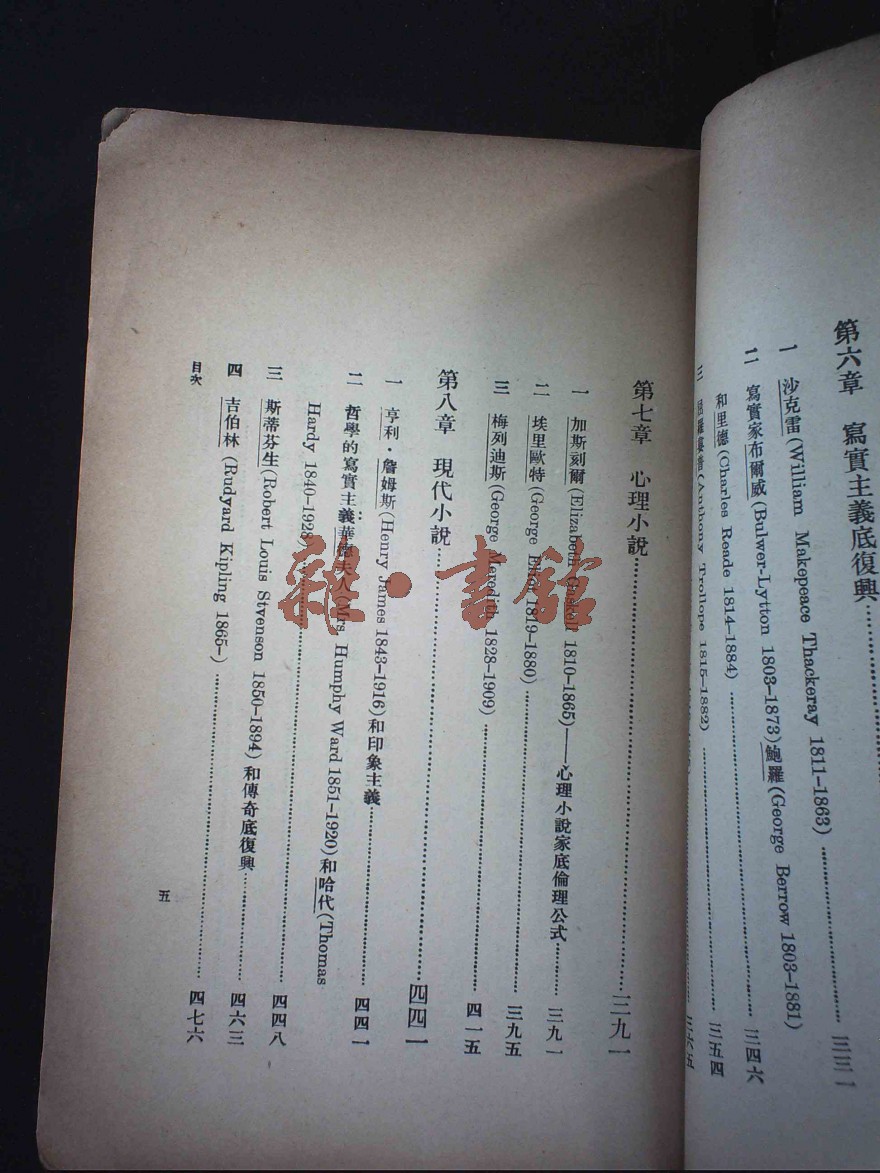 第六章　寫實主義底復興……三三一
一　沙克雷(William Makepeace Thackeray 1811–1863)……
二　寫實家布爾威(Bulwer-Lytton 1803–1873)鮑羅(George Berrow 1803–1881)
和里德(Charles Reade 1814–1884)……三四六
三　屈羅婁普(Anthony Trollope 1815–1882)……三五四
三六五
第七章　心理小說……三九一
一　加斯刻爾(Elizabeth Gaskell 1810–1865)——心理小說家底倫理公式……三九一
二　埃里歐特(George Eliot 1819–1880)……三九五
三　梅列迪斯(George Meredith 1828–1909)……四一五
第八章　現代小說……四四一
一　亨利·詹姆斯(Henry James 1843–1916)和印象主義……四四一
二　哲學的寫實主義：華德夫人(Mrs. Humphy Ward 1851–1920)和哈代(Thomas
Hardy 1840–1928……四四八
三　斯蒂芬生(Robert Louis Stvenson 1850–1894)和傳奇底復興……四六三
四　吉伯林(Rudyard Kipling 1865–)……四七六
目次
五
雜·書館